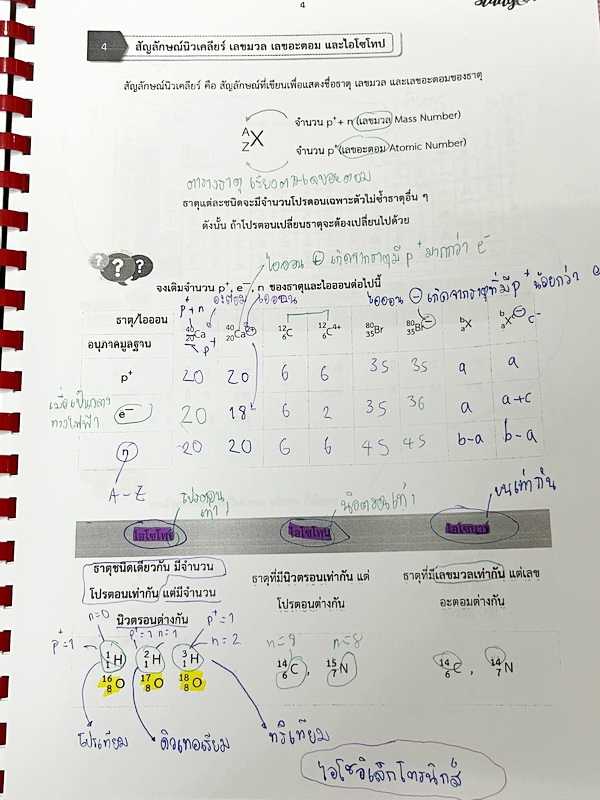 4
Study
4 สัญลักษณ์นิวเคลียร์ เลขมวล เลขอะตอม และไอโซโทป
สัญลักษณ์นิวเคลียร์ คือ สัญลักษณ์ที่เขียนเพื่อแสดงชื่อธาตุ เลขมวล และเลขอะตอมของธาตุ
จำนวน p⁺ + n (เลขมวล Mass Number)
A Z X
จำนวน p⁺ (เลขอะตอม Atomic Number)
ตารางธาตุ เรียงตามเลขอะตอม
ธาตุแต่ละชนิดจะมีจำนวนโปรตอนเฉพาะตัวไม่ซ้ำธาตุอื่น ๆ
ดังนั้น ถ้าโปรตอนเปลี่ยนธาตุจะต้องเปลี่ยนไปด้วย
ไอออน ⊕ เกิดจากธาตุมี p⁺ มากกว่า e⁻
? ? ?
จงเติมจำนวน p⁺, e⁻, n ของธาตุและไอออนต่อไปนี้
p⁺+n อะตอม ไอออน ไอออน ⊖ เกิดจากธาตุที่มี p⁺ น้อยกว่า e
ธาตุ/ไอออน ⁴⁰₂₀Ca ⁴⁰₂₀Ca²⁺ ¹²₆C ¹²₆C⁴⁺ ⁸⁰₃₅Br ⁸⁰₃₅Br⁻ ᵇₐX ᵇₐXᶜ⁻ c⁻
อนุภาคมูลฐาน p⁺
p⁺ 20 20 6 6 35 35 a a
เมื่อเป็นกลางทางไฟฟ้า e⁻ 20 18 6 2 35 36 a a+c
n 20 20 6 6 45 45 b-a b-a
A-Z
โปรตอนเท่า นิวตรอนเท่า บนเท่ากัน
ไอโซโทป ไอโซโทน ไอโซบาร์
ธาตุชนิดเดียวกัน มีจำนวน
โปรตอนเท่ากัน แต่มีจำนวน
นิวตรอนต่างกัน
ธาตุที่มีนิวตรอนเท่ากัน แต่
โปรตอนต่างกัน
ธาตุที่มีเลขมวลเท่ากัน แต่เลข
อะตอมต่างกัน
n=0 p⁺=1 n=1 p⁺=1
p⁺=1 n=2 n=8
¹₁H ²₁H ³₁H ¹⁴₆C , ¹⁵₇N ¹⁴₆C , ¹⁴₇N
¹⁶₈O ¹⁷₈O ¹⁸₈O
โปรเทียม ดิวเทอเรียม ทริเทียม
ไอโซอิเล็กโทรนิกส์